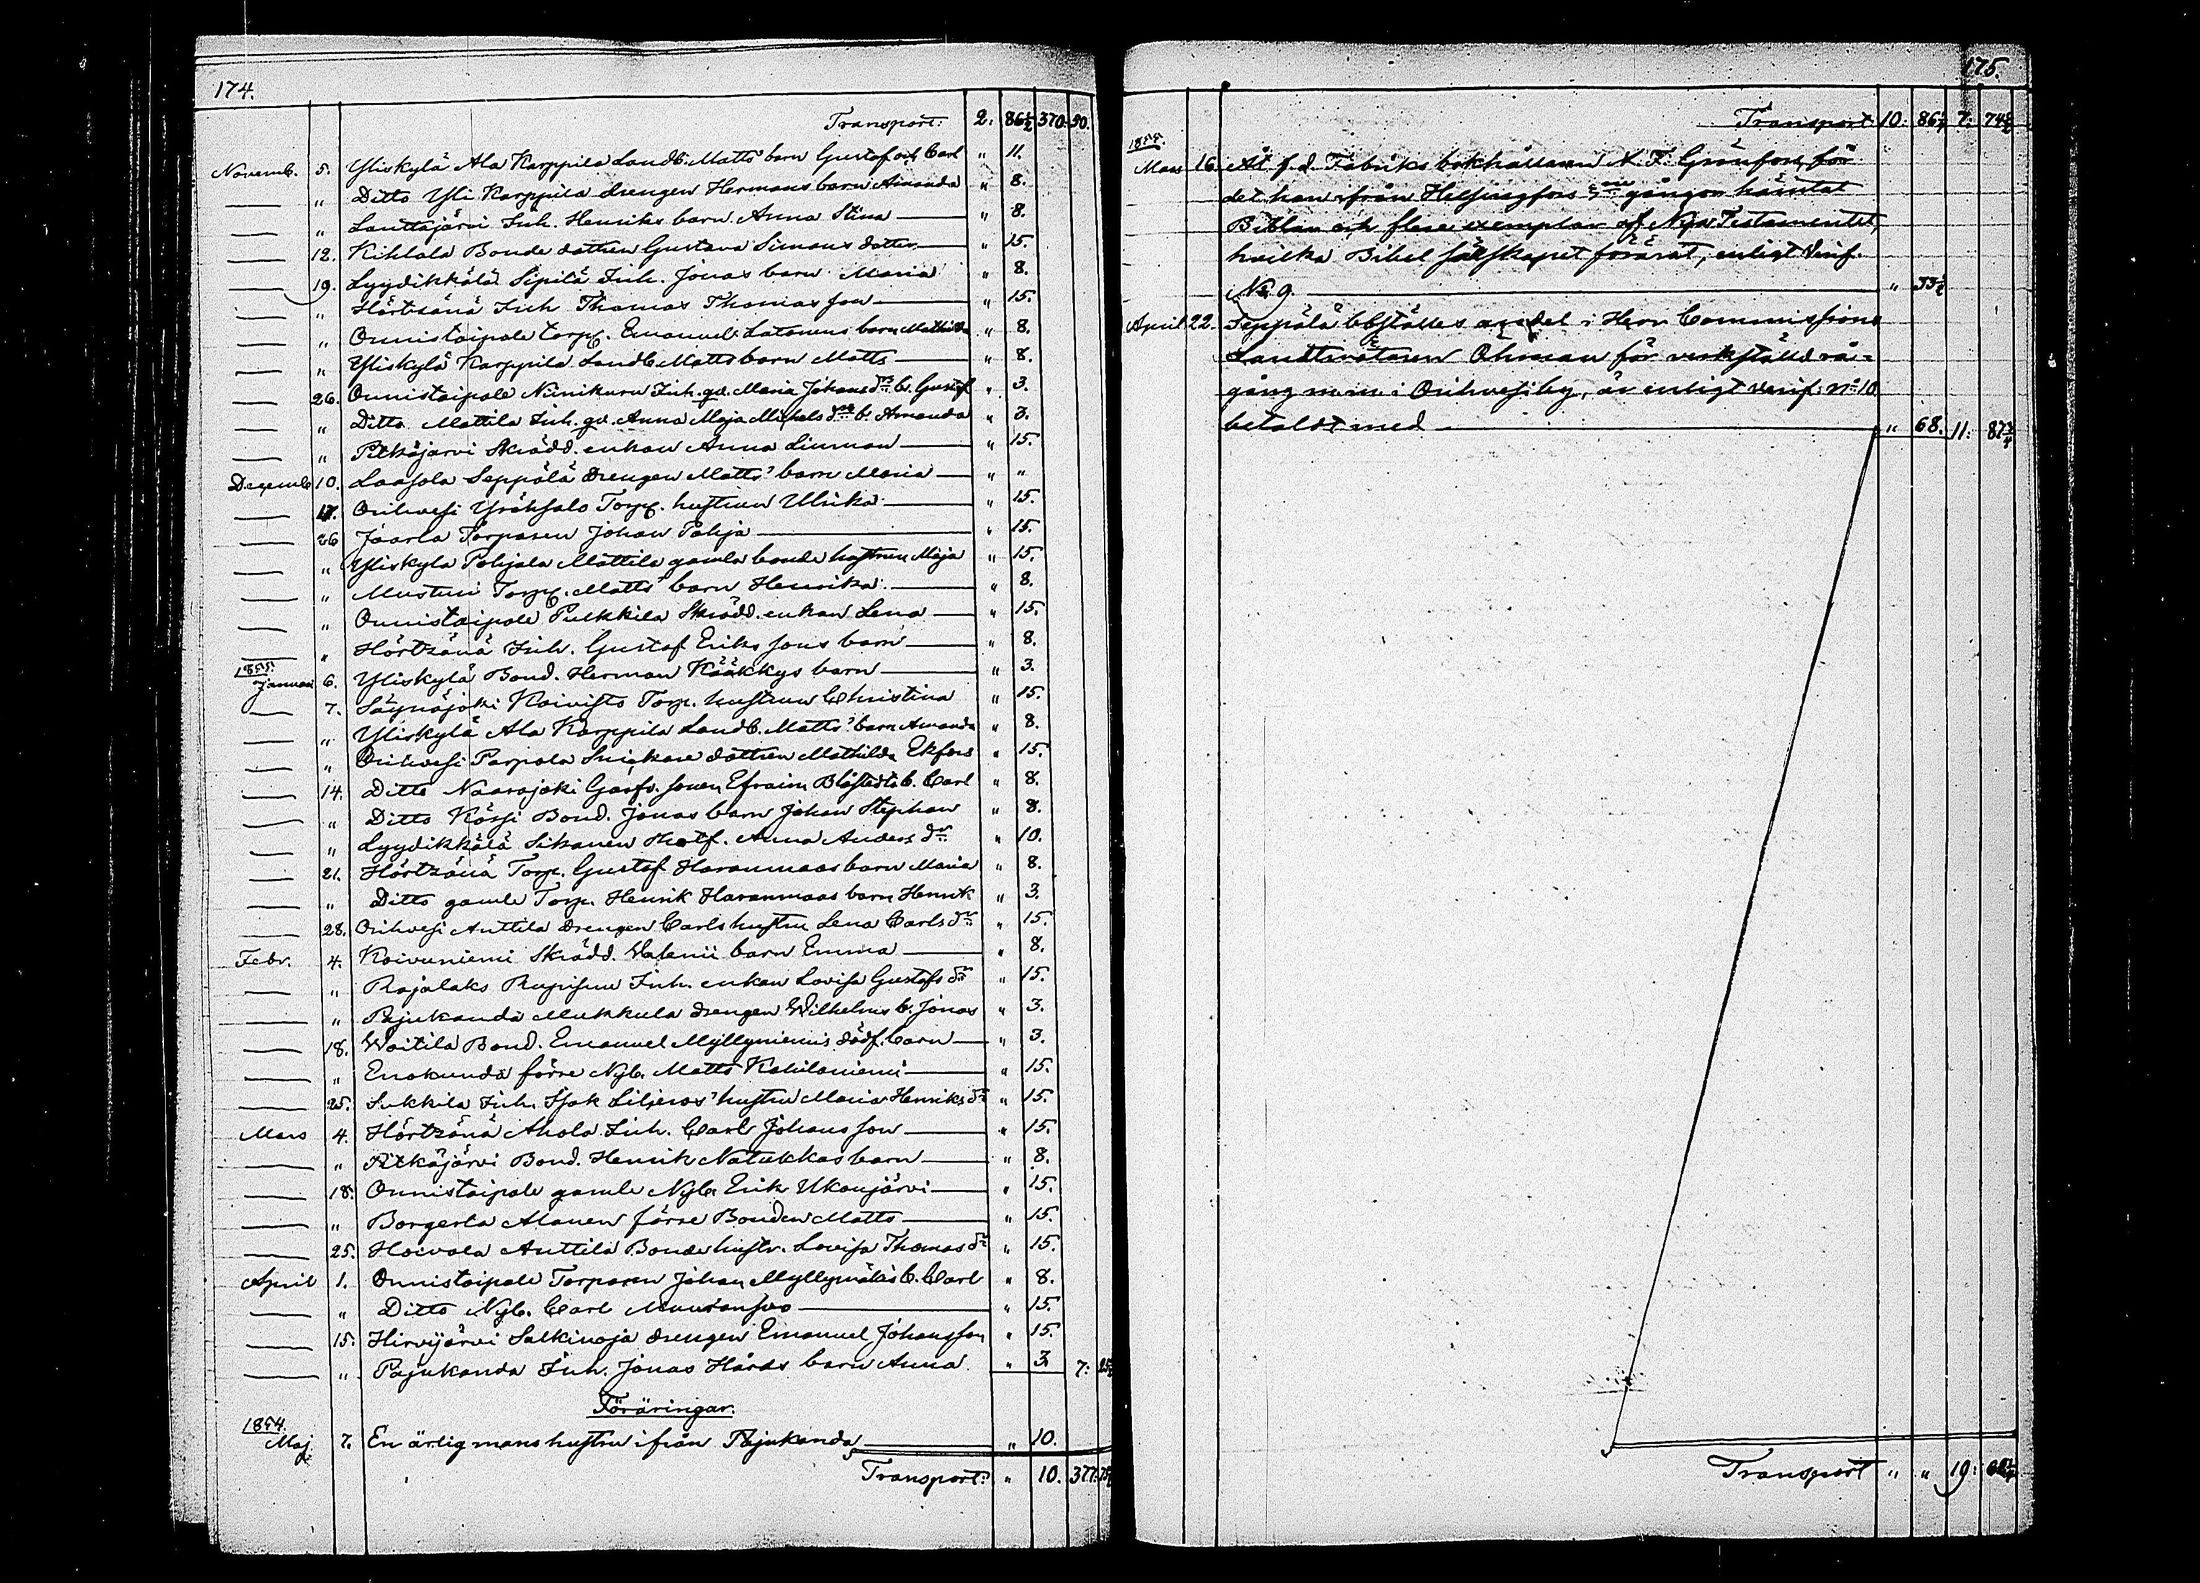 174.
Transport: 2: 86½ 370: 50.
Novemb. 5. Yliskylä Ala Karppila Landb. Matts' barn Gustaf och Carl " 11.
" Ditto Yli Karppila drengen Hermans barn Amanda " 8.
" Lauttajärvi Inh. Henriks barn Anna Stina " 8.
12. Kihlala Bonde dottren Gustava Simons dotter " 15.
19. Lyydikkälä Sipilä Inh. Jonas barn Maria " 8.
" Hörtsänä Inh Thomas Thomasson " 15.
" Onnistaipale Torp. Emanuel barn Mathilda " 8.
" Yliskylä Karppila Landb Matts barn Matts " 8.
26. Onnistaipale Niinikuru Inh. qv. Maria Johans dr b. Gustaf " 3.
" Ditto Mattila Inh. qv. Anna Maja Michels dr b. Amanda " 3.
" Pitkäjärvi Skrädd. enkan Anna " 15.
Decemb 10. Laasola Seppälä drengen Matts' barn Maria " "
17. Orihvesi Yröksalo Torp. hustrun Ulrika " 15.
26 Jaarla Torparen Johan Pohja " 15.
" Yliskylä Pohjala Mattila gamla bonde hustrun Maja " 15.
" Mustui Torp. Matts' barn Henrika " 8.
" Onnistaipale Pulkkila Skrädd. enkan Lena " 15.
" Hörtsänä Inh. Gustaf Erikssons barn " 8.
1855.
Januari 6. Yliskylä Bond. Herman Kääkkys barn " 3.
7. Säynäjoki Koivisto Torp. hustrun Christina " 15.
" Yliskylä Ala Karppila Landb. Matts' barn Amanda " 8.
" Orihvesi Parpola Snickare dottren Mathilda Ekfors " 15.
14. Ditto Naarajoki sonen Efraim Blåfstedts b. Carl " 8.
" Ditto Körsi Bond. Jonas barn Johan Stephan " 8.
" Lyydikkälä Sikanen Anna Anders dr " 10.
21. Hörtsänä Torp. Gustaf Haranmaas barn Maria " 8.
" Ditto gamle Torp. Henrik Haranmaas barn Henrik " 3.
28. Orihvesi Anttila Drengen Carls hustru Lena Carls dr " 15.
Febr. 4. Koivuniemi Skrädd. barn Emma " 8.
" Rajalaks Inh. enkan Lovisa Gustafs dr " 15.
" Pajukanda Mukkula drengen Wilhelms b. Jonas " 3.
18. Woitila Bond. Emanuel Myllyniemis dödf. barn " 3.
" Enokunda förre Nyb. Matts Kahilaniemi " 15.
25. Sukkila Inh. Isak Liljeros' hustru Maria Henriks dr " 15.
Mars 4. Hörtsänä Ahola Inh. Carl Johansson " 15.
" Pitkäjärvi Bond. Henrik Natukkas barn " 8.
18. Onnistaipale gamle Nyb. Erik Ukonjärvi " 15.
" Borgerla Alanen förre Bonden Matts " 15.
25. Hoivala Anttila Bonde hustr. Lovisa Thomas dr " 15.
April 1. Onnistaipale Torparen Johan Myllymäkis b. Carl " 8.
" Ditto Nyb. Carl " 15.
15. Hirvijärvi Salkinoja drengen Emanuel Johansson " 15.
" Pajukanda Inh. Jonas Hårds barn Anna " 3. 7:
Föräringar.
1854.
Maj 7. En ärlig mans hustru ifrån Pajukanda " 10.
Transport: " 10. 377:
175.
Transport 10: 86½ 7: 74½
1855.
Mars 16. Åt f. d. Fabriks bokhållaren N. F. Grönfors, för
det han från Helsingfors gångor hämtat
Biblar och flere exemplar af Nya Testamentet,
hvilka Bibel sälskapet förärat, enligt Verif.
No 9. " 33½
April 22. Seppälä andel i Herr Commissions
Landtmätaren Öhman för verkställd rå-
gång m. m. i Orihvesi by, är enligt verif: No 10
betaldt med " 68. 11: 87¾
Transport " " 19: